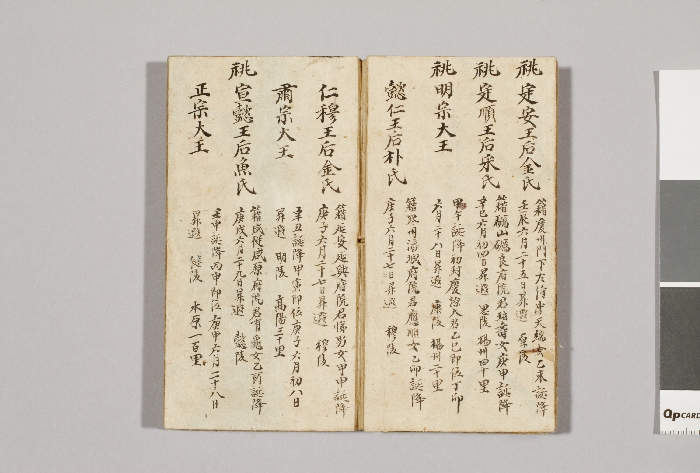 祧 定安王后金氏
籍慶州門下左侍中天瑞女乙未誕降
壬辰六月二十五日昇遐 厚陵
祧 定順王后宋氏
籍礪山礪良府院君玹壽女庚申誕降
辛巳六月初四日昇遐 思陵 楊州四十里
祧 明宗大王
甲午誕降初封慶原大君乙巳即位丁卯
六月二十八日昇遐 康陵 楊州二十里
懿仁王后朴氏
籍羅州潘城府院君應順女乙卯誕降
庚子六月二十七日昇遐 穆陵
仁穆王后金氏
籍延安延興府院君悌男女甲申誕降
庚子六月二十七日昇遐 穆陵
肅宗大王
辛丑誕降甲寅即位庚子六月初八日
昇遐 明陵 高陽三十里
祧 宣懿王后魚氏
籍咸從咸原府院君有龜女乙酉誕降
庚戌六月二十九日昇遐 懿陵
正宗大王
壬申誕降丙申即位庚申六月二十八日
昇遐 健陵 水原一百里
QPCARD